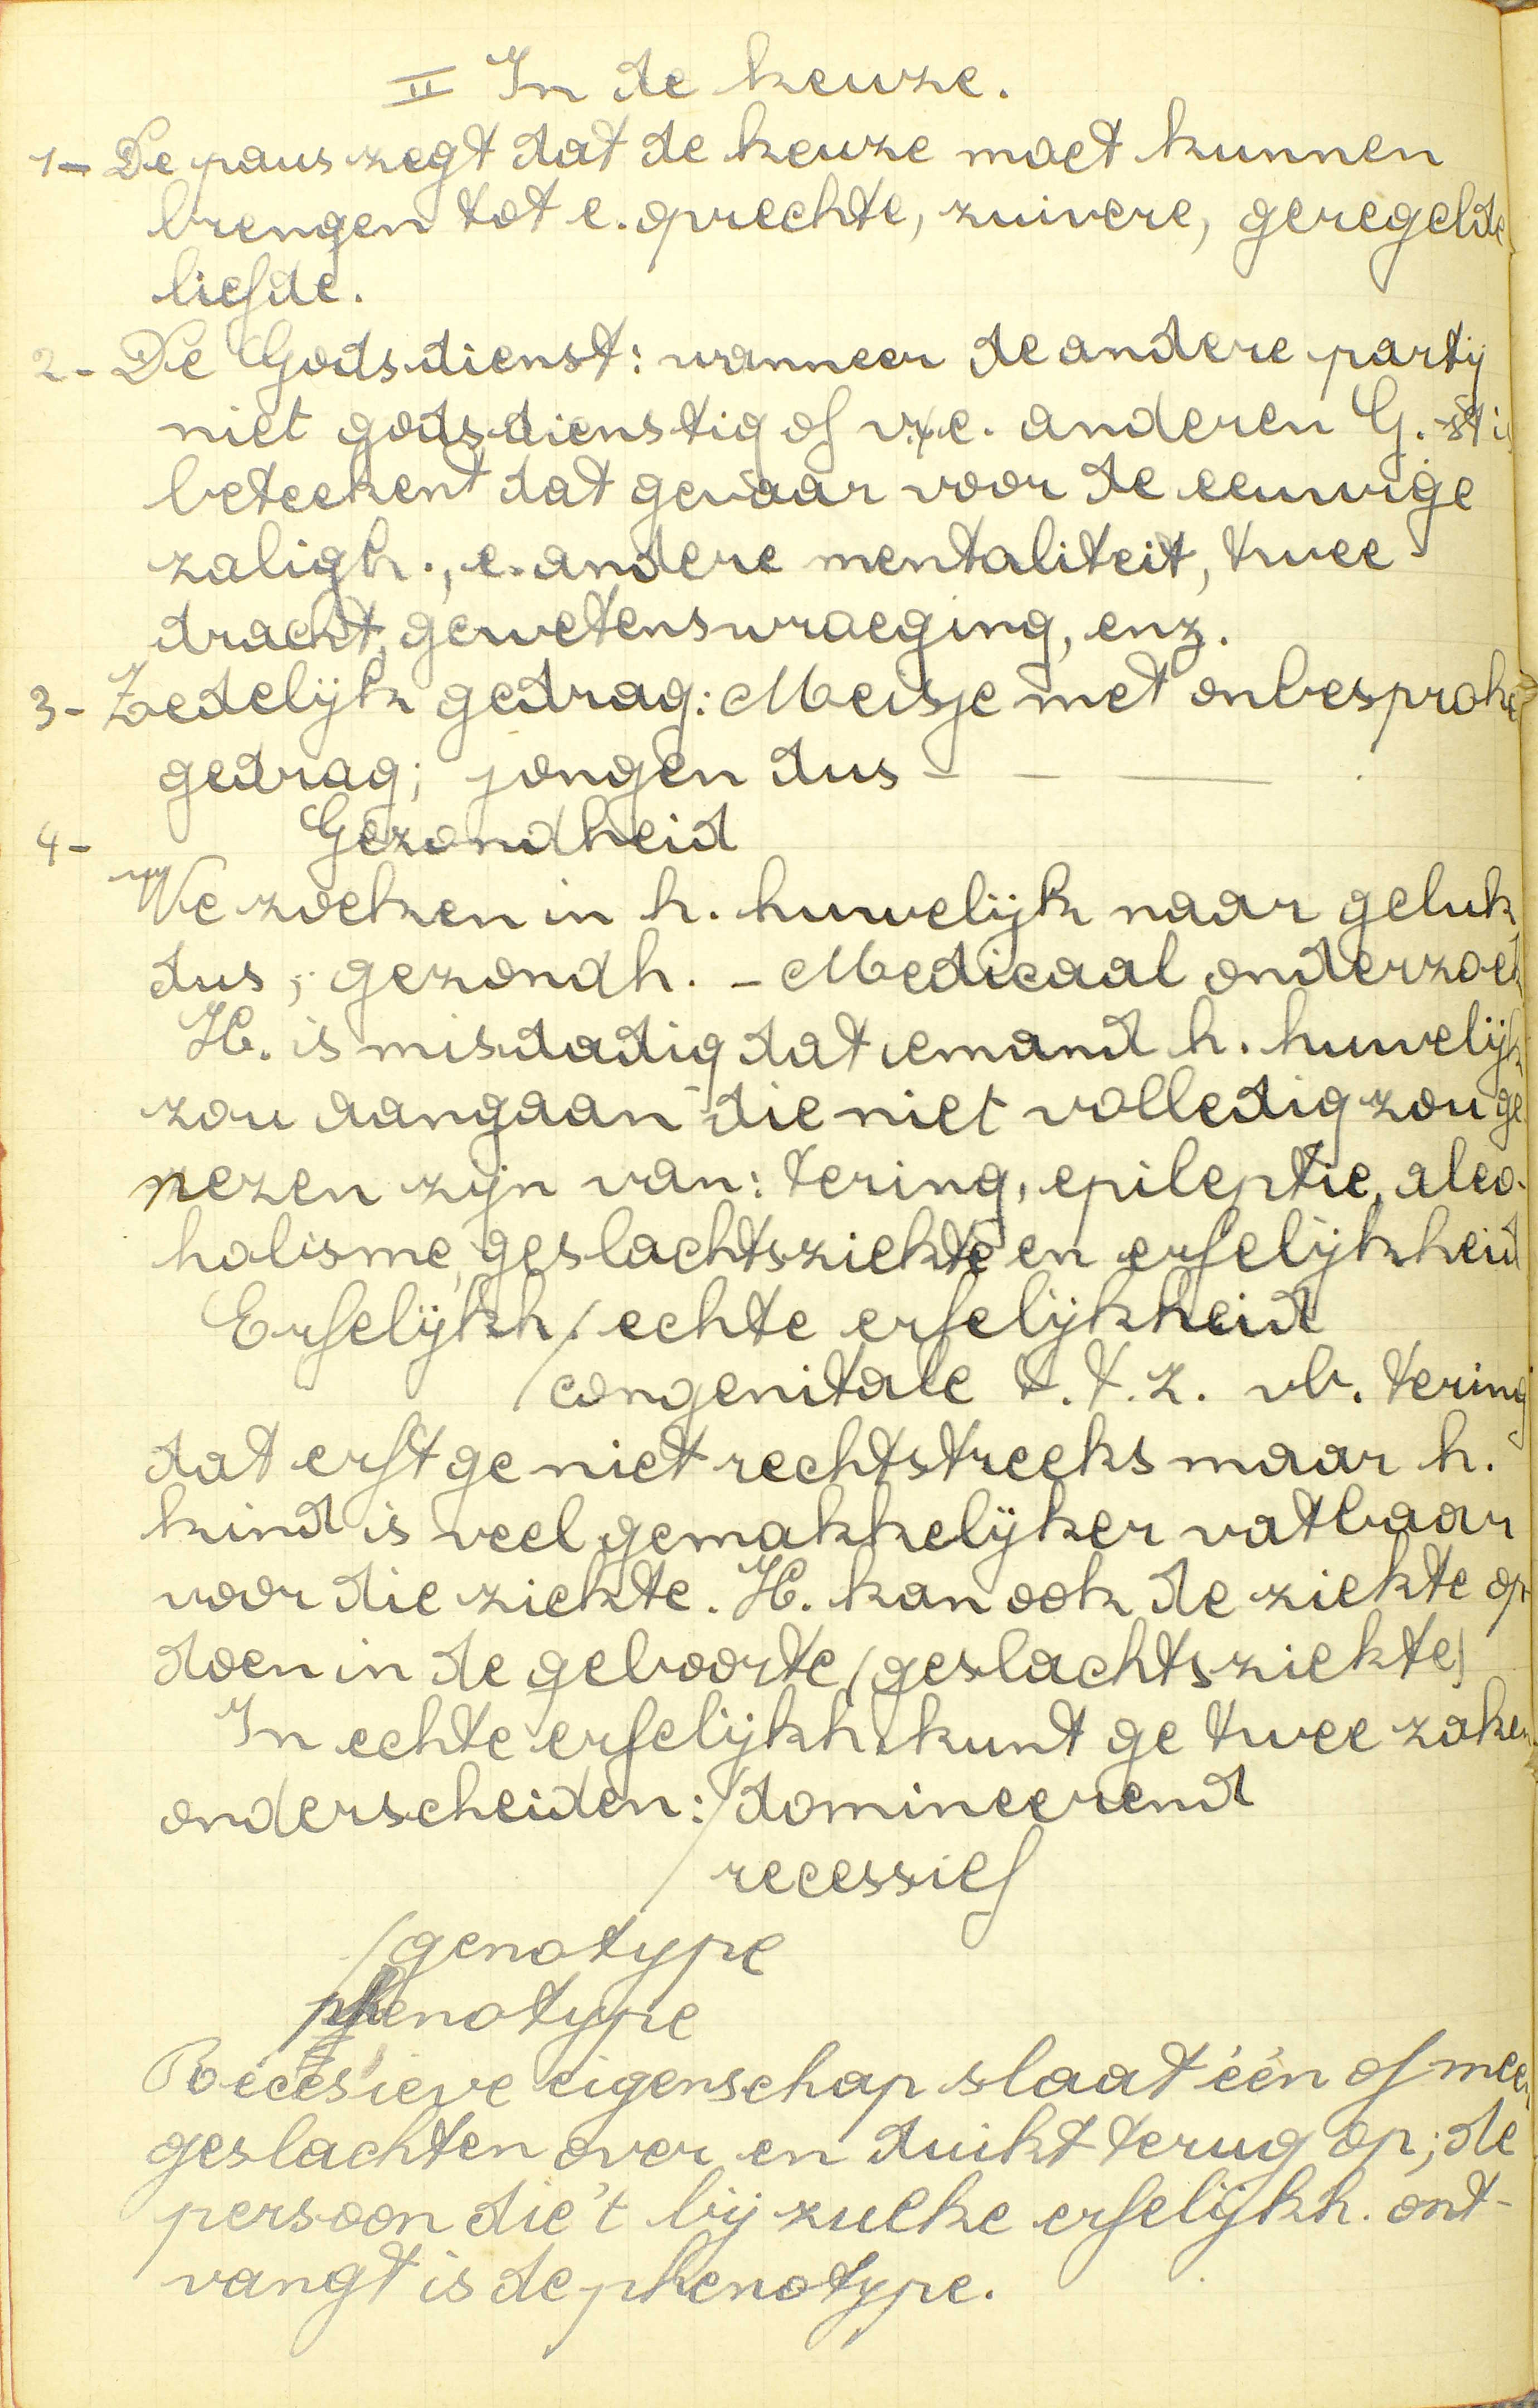 II In de keuze.
1- De paus zegt dat de keuze moet kunnen
brengen tot e. oprechte, zuivere, geregelde
liefde.
2- De Godsdienst: wanneer de andere partij
niet godsdienstig of v. e. anderen G.-st is
beteekent dat gevaar voor de eeuwige
zaligh., e. andere mentaliteit, twee
dracht, gewetenswroeging, enz.
3- Zedelijk gedrag: Meisje met onbesproke
gedrag; jongen dus - — —— .
4- Gezondheid
We zoeken in h. huwelijk naar geluk
dus, gezondh. - Medicaal onderzoek
H. is misdadig dat iemand h. huwelijk
zou aangaan die niet volledig zou ge
nezen zijn van: tering, epileptie, alco-
holisme, geslachtsziekte en erfelijkheid
Erfelijkh. / echte erfelijkheid
/ congenitale t.t.z. vb. tering
dat erft ge niet rechtstreeks maar h.
kind is veel gemakkelijker vatbaar
voor die ziekte. H. kan ook de ziekte op
doen in de geboorte (geslachtsziekte)
In echte erfelijkh. kunt ge twee zaken
onderscheiden: / domineerend
/ recessief
/ genotype
phenotype
Recesieve eigenschap slaat één of meer
geslachten over en duikt terug op; de
persoon die 't bij zulke erfelijkh. ont-
vangt is de phenotype.